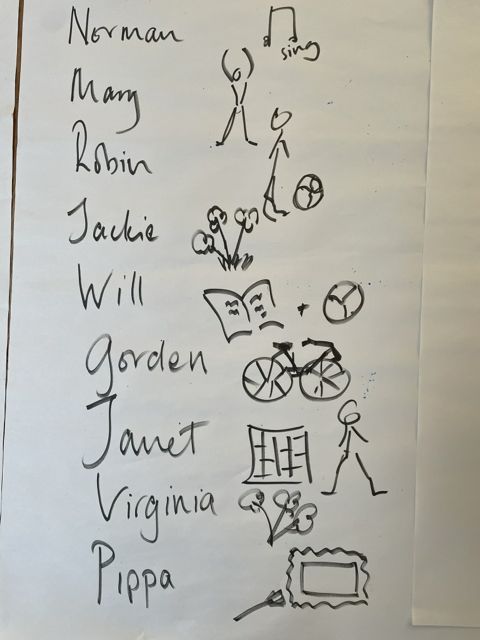 Norman
sing
Mary
Robin
Jackie
Will
+
Gorden
Janet
Virginia
Pippa